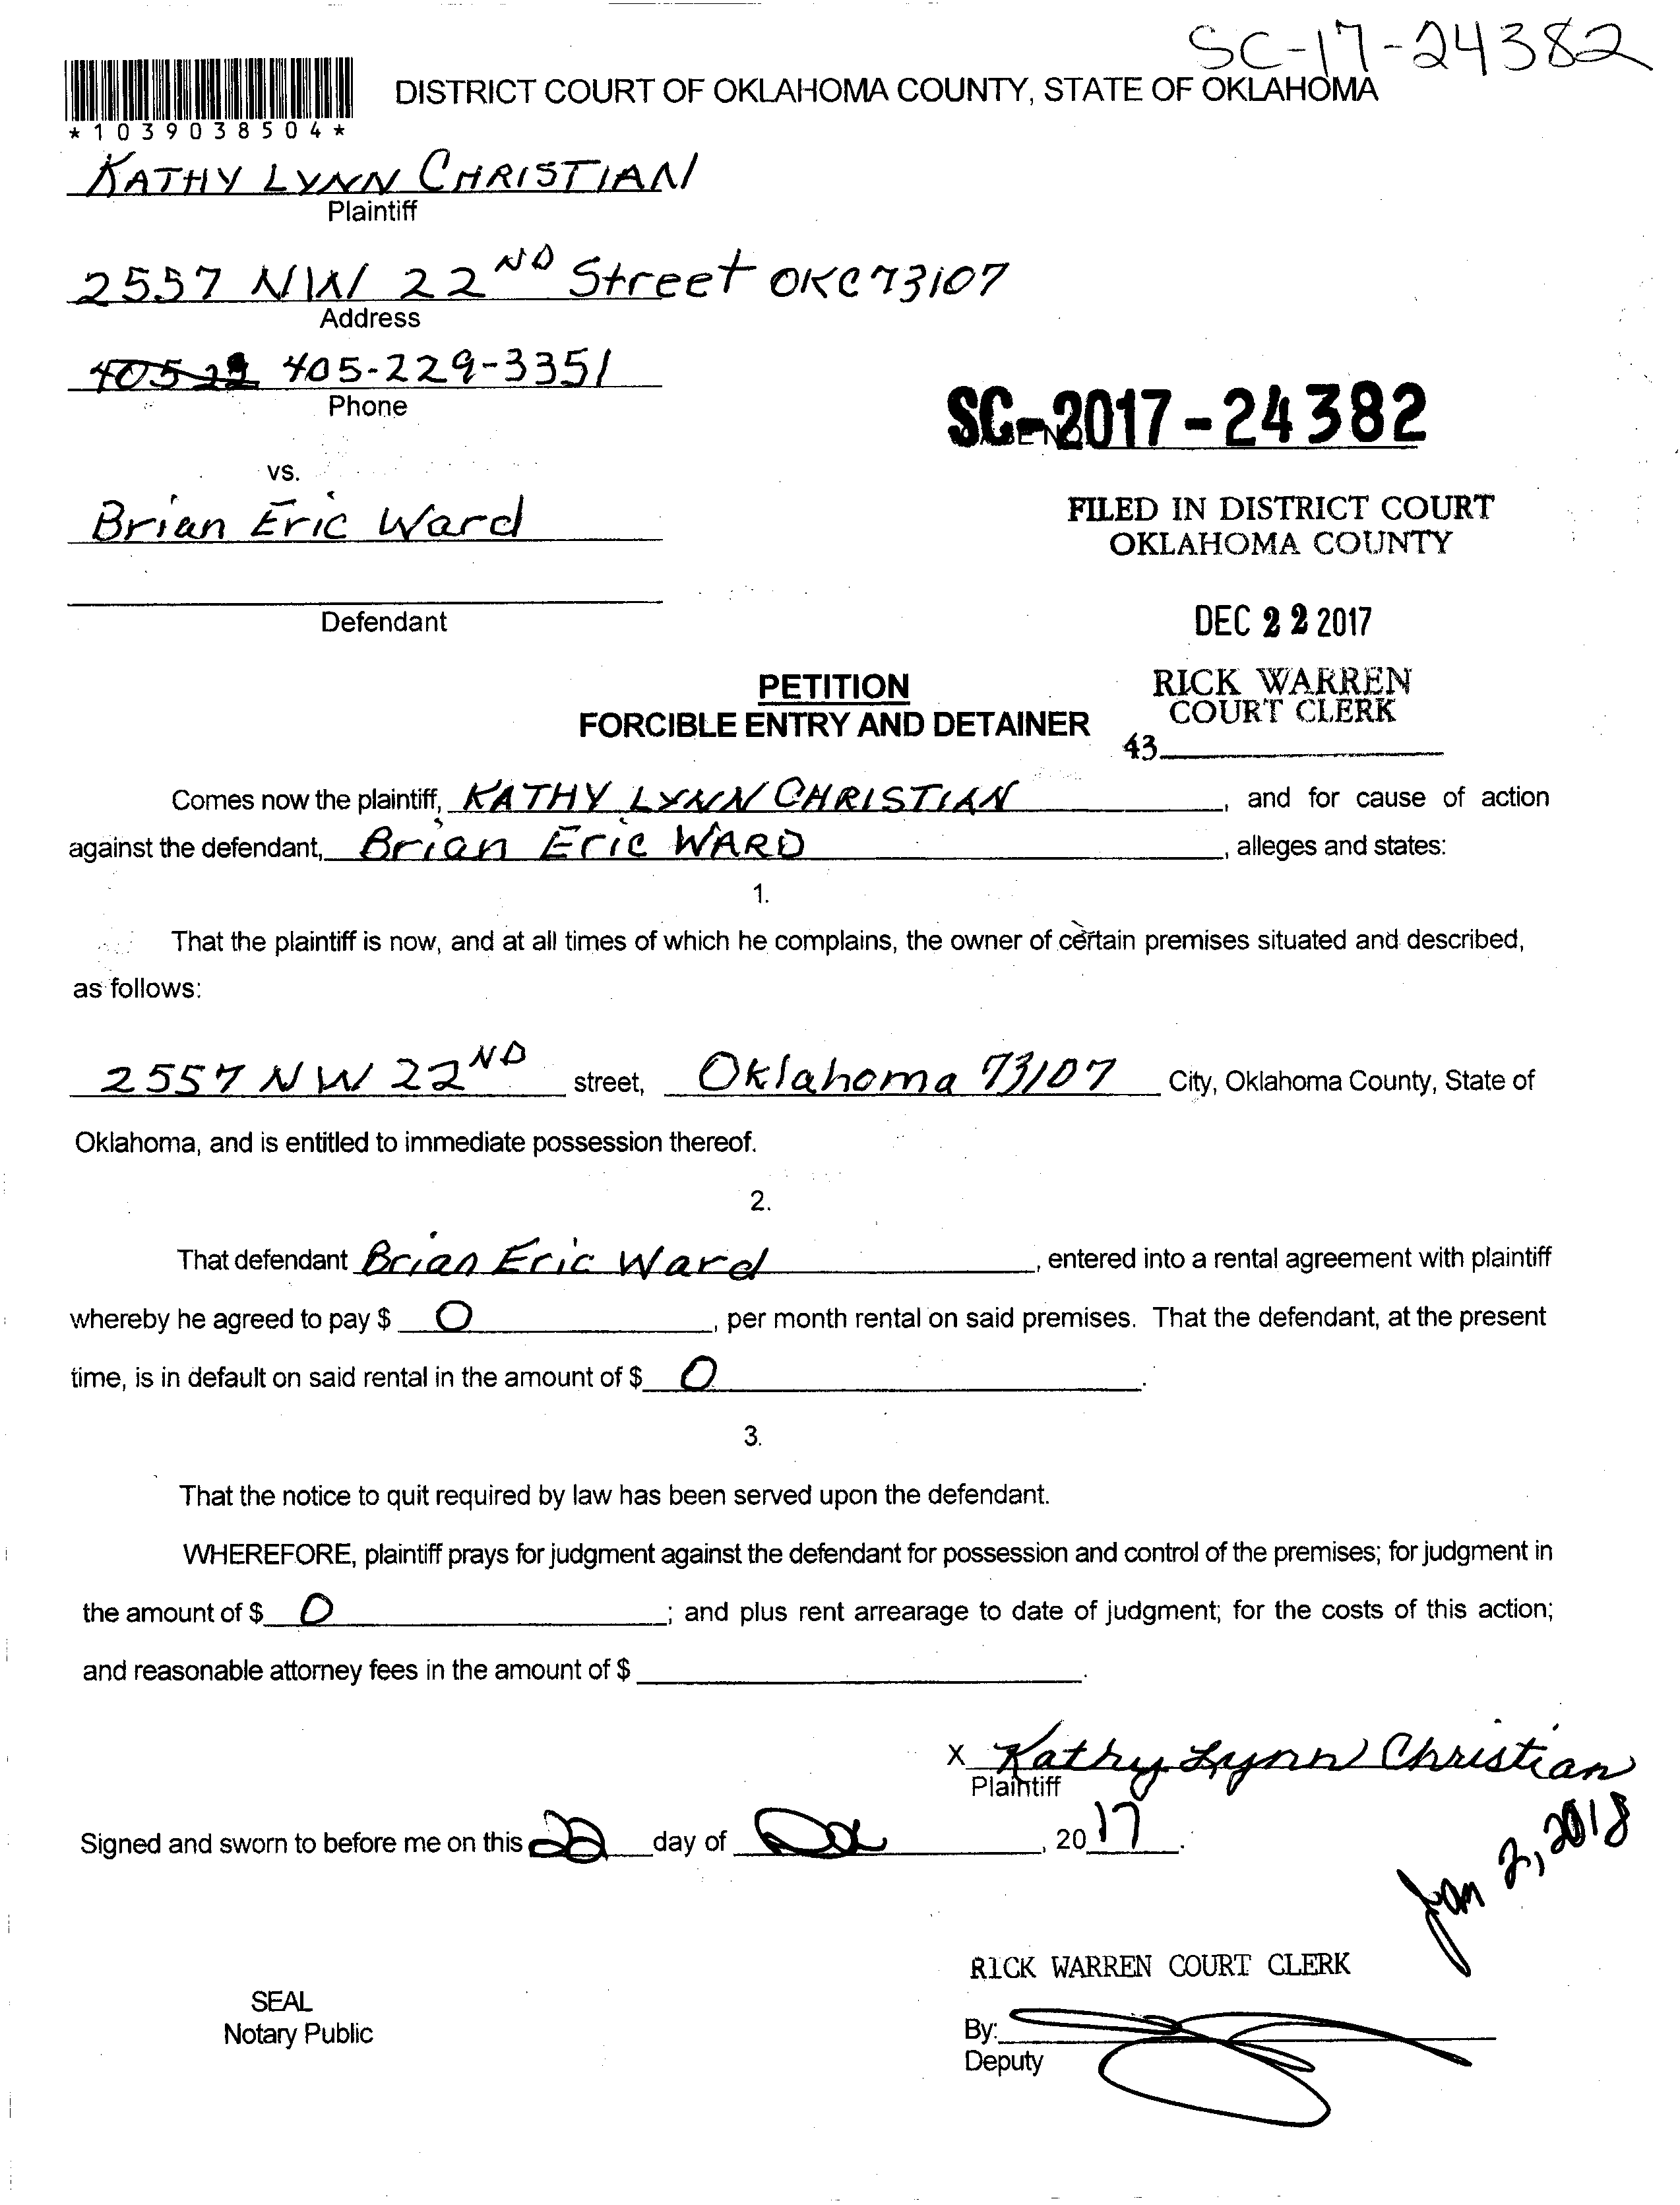 SC-17-24382
DISTRICT COURT OF OKLAHOMA COUNTY, STATE OF OKLAHOMA
*1039038504*
KATHY LYNN CHRISTIAN
Plaintiff
2557 NW 22ND Street OKC 73107
Address
405-229-3351
Phone
SC-2017-24382
vs.
Brian Eric Ward
FILED IN DISTRICT COURT
OKLAHOMA COUNTY
Defendant
DEC 22 2017
PETITION
FORCIBLE ENTRY AND DETAINER
RICK WARREN
COURT CLERK
43
Comes now the plaintiff, KATHY LYNN CHRISTIAN, and for cause of action
against the defendant, Brian Eric WARD, alleges and states:
1.
That the plaintiff is now, and at all times of which he complains, the owner of certain premises situated and described,
as follows:
2557 NW 22ND street, Oklahoma 73107 City, Oklahoma County, State of
Oklahoma, and is entitled to immediate possession thereof.
2.
That defendant Brian Eric Ward, entered into a rental agreement with plaintiff
whereby he agreed to pay $ 0, per month rental on said premises. That the defendant, at the present
time, is in default on said rental in the amount of $ 0.
3.
That the notice to quit required by law has been served upon the defendant.
WHEREFORE, plaintiff prays for judgment against the defendant for possession and control of the premises; for judgment in
the amount of $ 0; and plus rent arrearage to date of judgment; for the costs of this action;
and reasonable attorney fees in the amount of $ .
X Kathy Lynn Christian
Plaintiff
Signed and sworn to before me on this 22 day of Dec, 2017.
Jan 2, 2018
RICK WARREN COURT CLERK
SEAL
Notary Public
By:
Deputy